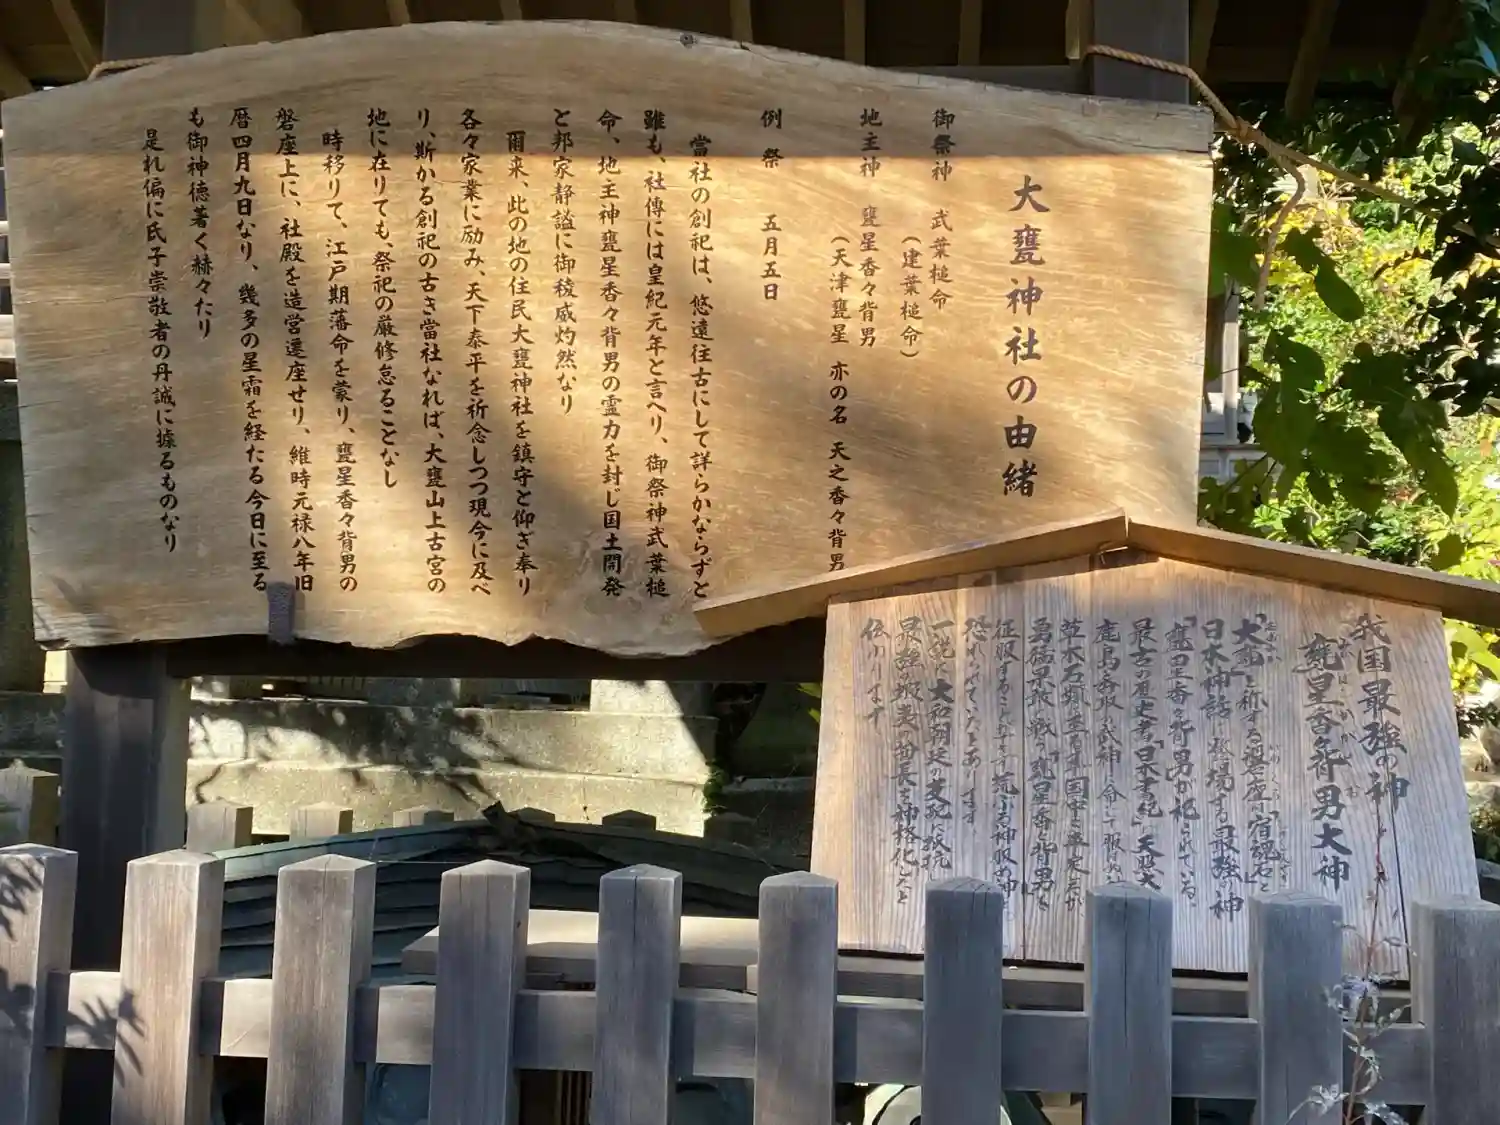 大甕神社の由緒
御祭神　武葉槌命
（建葉槌命）
地主神　甕星香々背男
（天津甕星　亦の名　天之香々背男
例祭　五月五日
當社の創祀は、悠遠往古にして詳らかならずと
雖も、社傳には皇紀元年と言へり、御祭神武葉槌
命、地主神甕星香々背男の霊力を封じ国土開発
と邦家静謐に御稜威灼然なり
爾来、此の地の住民大甕神社を鎮守と仰ぎ奉り
各々家業に励み、天下泰平を祈念しつつ現今に及べ
り、斯かる創祀の古き當社なれば、大甕山上古宮の
地に在りても、祭祀の厳修怠ることなし
時移りて、江戸期藩命を蒙り、甕星香々背男の
磐座上に、社殿を造営遷座せり、維時元禄八年旧
暦四月九日なり、幾多の星霜を経たる今日に至る
も御神徳著く赫々たり
是れ偏に氏子崇敬者の丹誠に據るものなり
我国最強の神
甕星香々背男大神
「大甕」と称する磐座「宿魂石」と
日本神話に登場する最強の神
「甕星香々背男」が祀られている。
最古の歴史書「日本書紀」に天甕
鹿島香取の武神に命じて
草木石類に至るまで国中を平定
勇猛果敢に戦う「甕星香々背男」を
征服することならず荒ぶる神
恐れられていたとあります
一説に大和朝廷の支配に抵抗した
最強の蝦夷の首長を神格化したと
伝わります